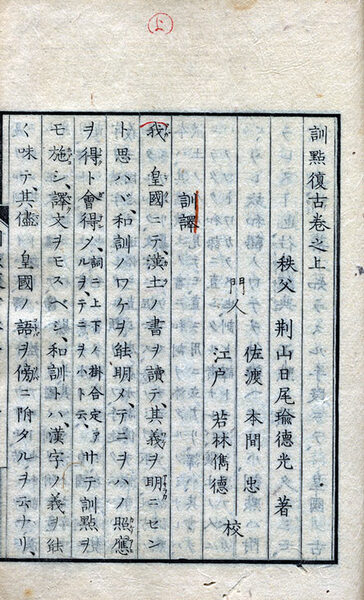 上
訓點復古卷之上
秩父 荆山日尾瑜德光 著
門人
佐渡 本間 忠
江戸 若林儁德
校
訓譯
我 皇國ニテ、漢土ノ書ヲ讀テ、其義ヲ明ニセン
ト思ハヾ、和訓ノワケヲ能明メ、テニヲハノ照應
ヲ得ト會得シ、詞ニ上下ノ掛合定アルヲテニヲハト云、サテ訓點ヲ
モ施シ、譯文ヲモスベシ、和訓トハ漢字ノ義ヲ能
ク味テ、其儘 皇國ノ語ヲ傍ニ附タルヲ云ナリ、